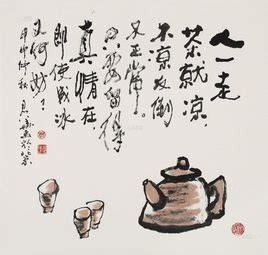 人一走
茶就凉，
不凉反倒
不正常。
只要留得
真情在
即使成冰
又何妨。
甲申仲秋